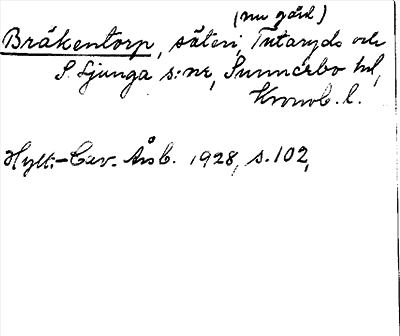 (nu gård)
Bråkentorp, säteri, Tutaryds och
S. Ljunga s:nr, Sunnerbo hd,
Kronob. l.
Hylt.-Cav. Årsb. 1928, s. 102,